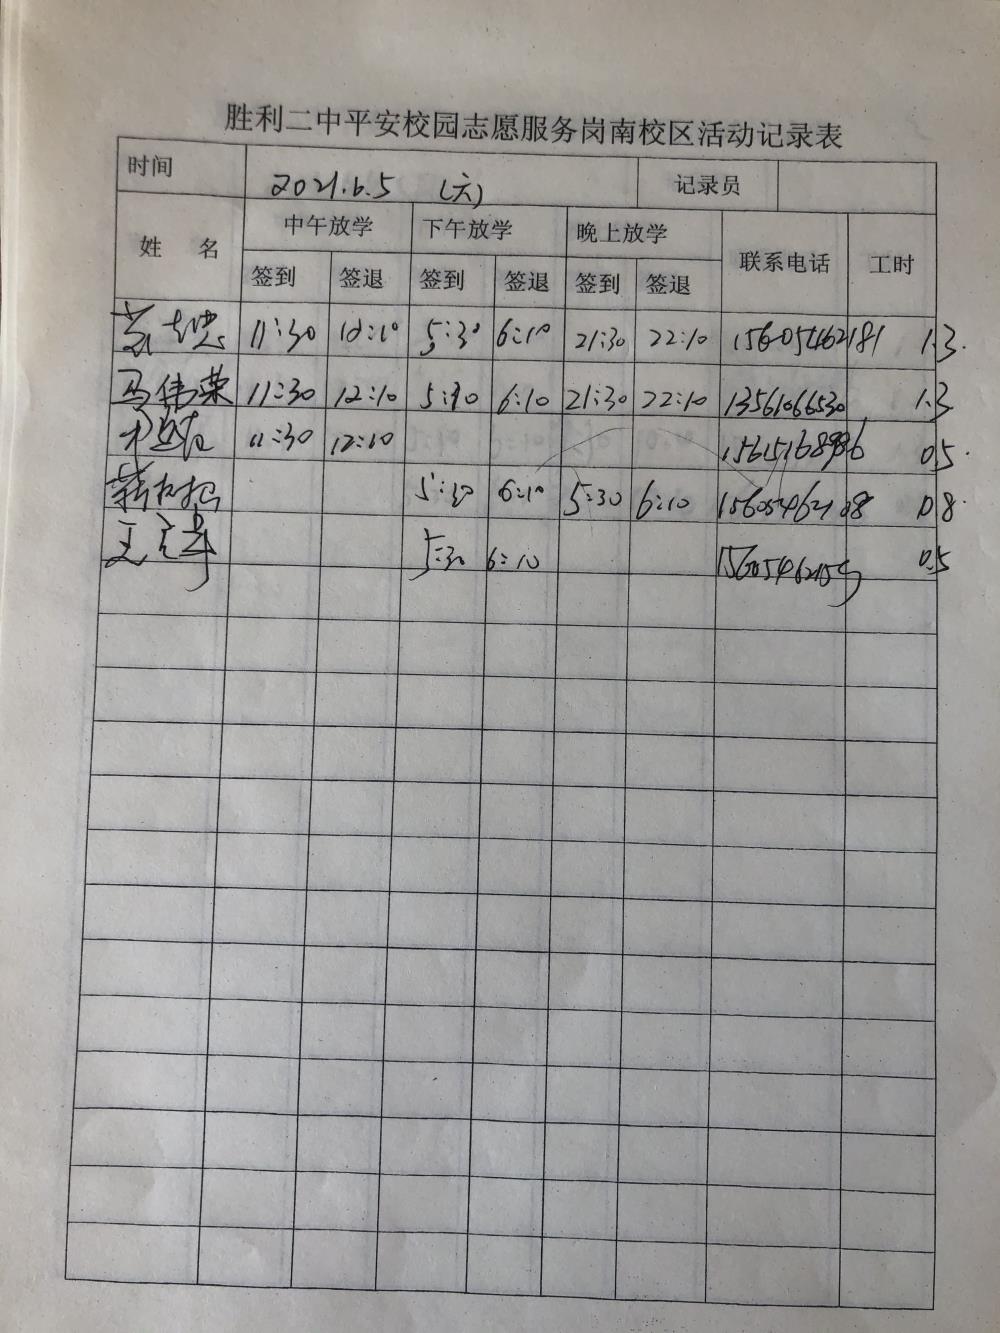 胜利二中平安校园志愿服务岗南校区活动记录表
时间 2021.6.5 (六) 记录员
姓 名 中午放学 下午放学 晚上放学 联系电话 工时
签到 签退 签到 签退 签到 签退
11:30 5:30 6:10 21:30 22:10 15605462181 1.3
马伟荣 11:30 12:10 6:10 21:30 22:10 13561066530 1.3
11:30 12:10 0.5
5:30 6:10 5:30 6:10 15605462108 0.8
王 5:30 6:10 0.5